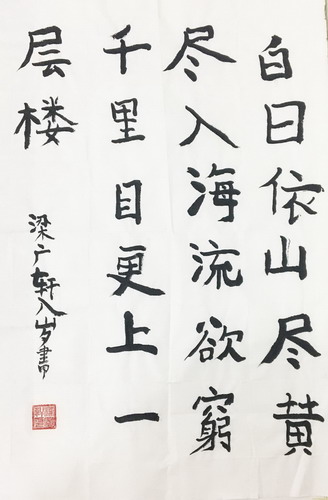 白日依山尽黄
尽入海流欲窮
千里目更上一
层楼
梁广轩八岁書